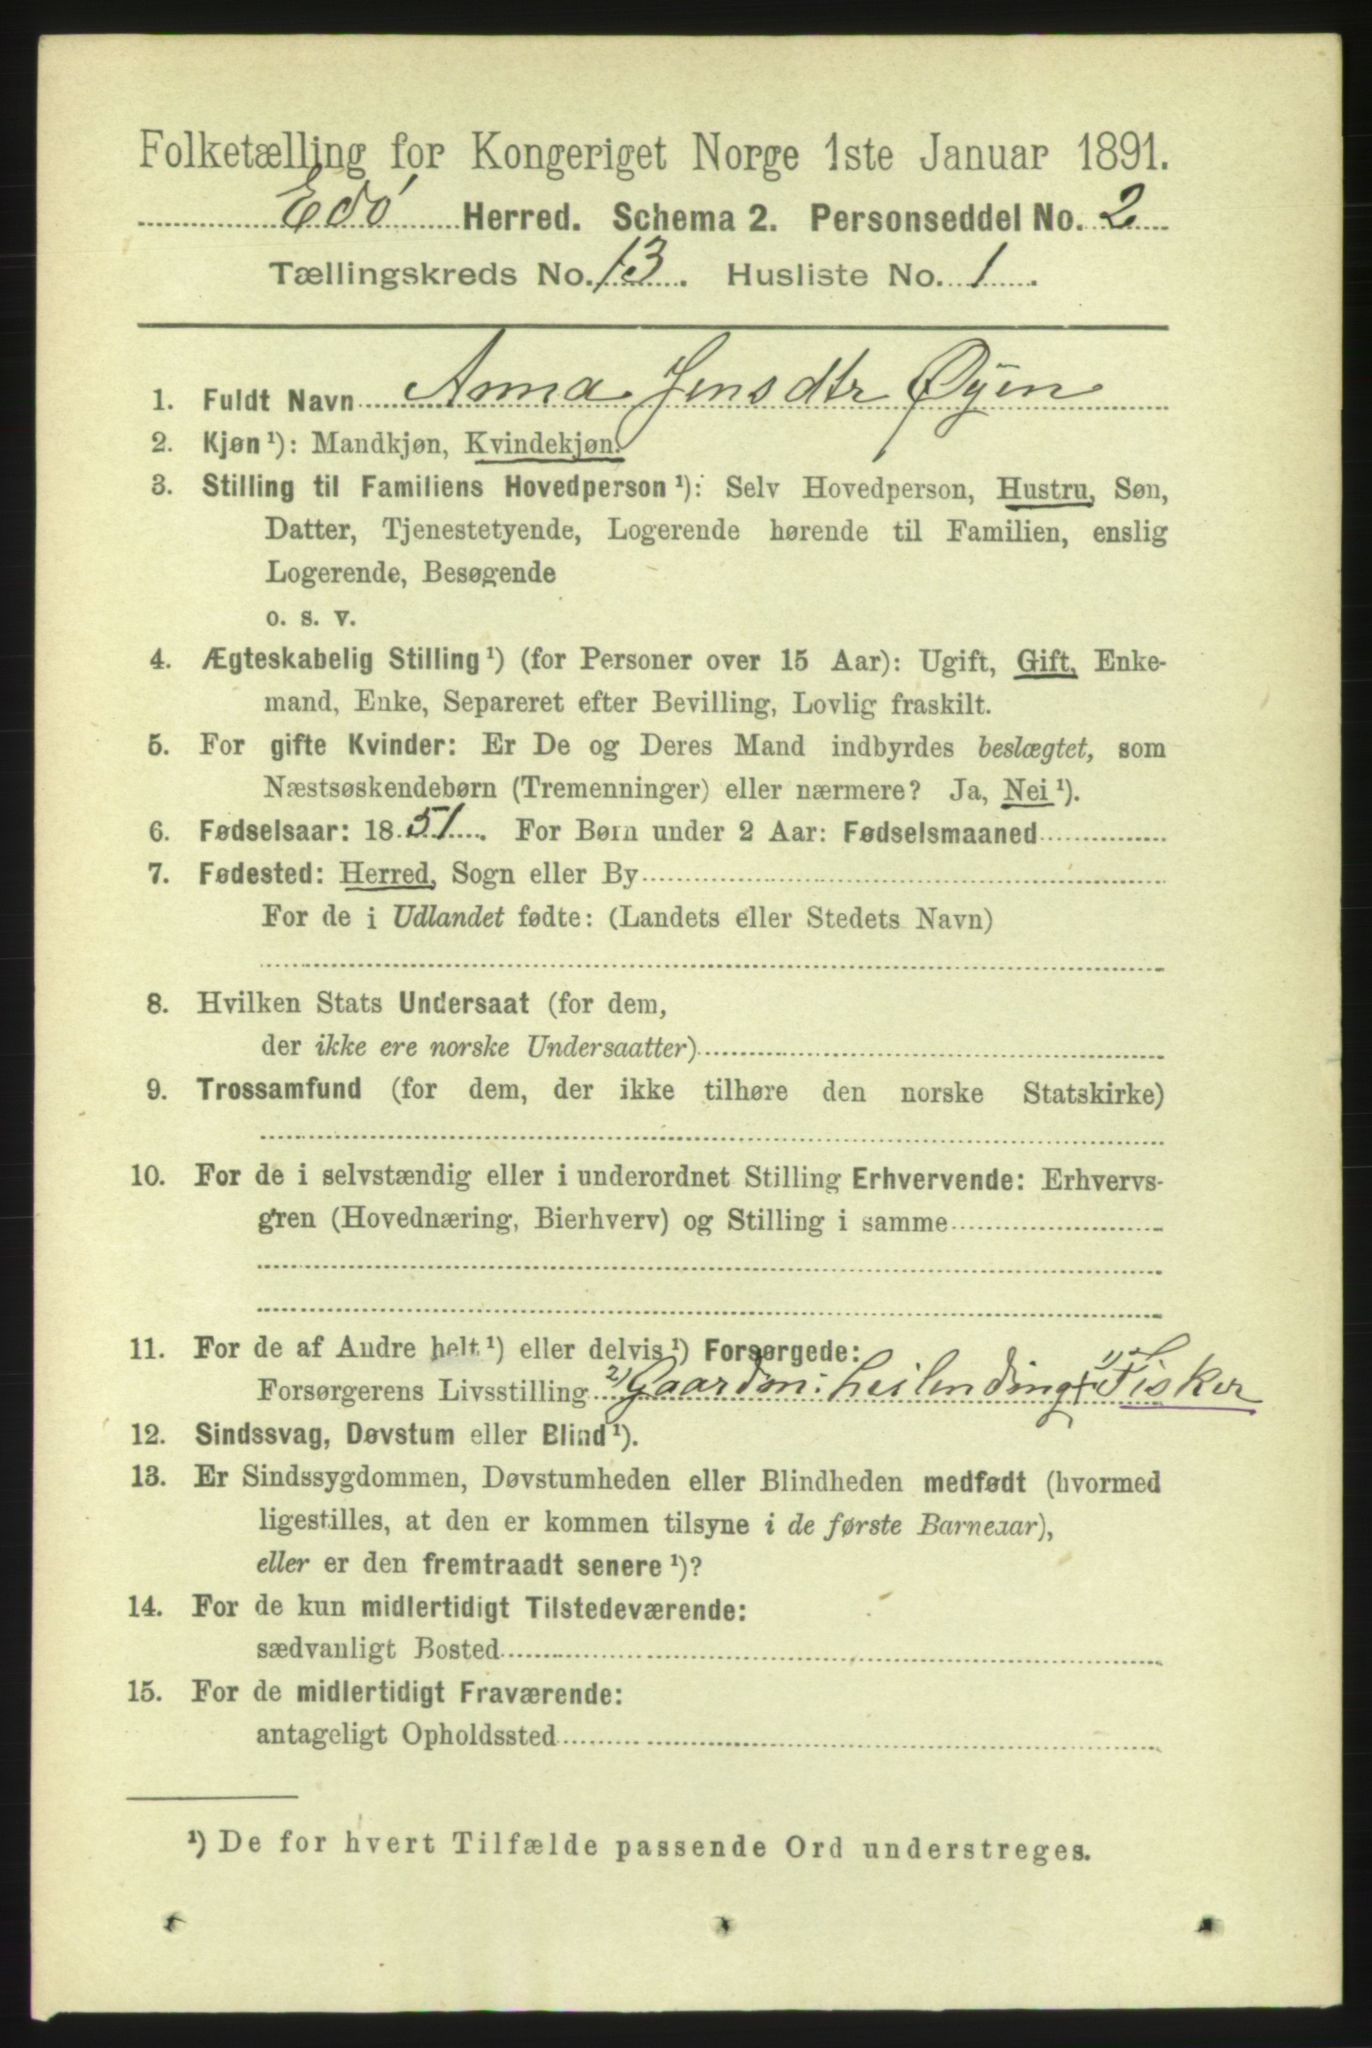 Folketælling for Kongeriget Norge 1ste Januar 1891.
Edø Herred. Schema 2. Personseddel No. 2
Tællingskreds No. 13. Husliste No. 1.
1. Fuldt Navn Anna Jensdtr Øyen
2. Kjøn¹): Mandkjøn, Kvindekjøn.
3. Stilling til Familiens Hovedperson¹): Selv Hovedperson, Hustru, Søn,
Datter, Tjenestetyende, Logerende hørende til Familien, enslig
Logerende, Besøgende
o. s. v.
4. Ægteskabelig Stilling¹) (for Personer over 15 Aar): Ugift, Gift, Enke-
mand, Enke, Separeret efter Bevilling, Lovlig fraskilt.
5. For gifte Kvinder: Er De og Deres Mand indbyrdes beslægtet, som
Næstsøskendebørn (Tremenninger) eller nærmere? Ja, Nei¹).
6. Fødselsaar: 1851. For Børn under 2 Aar: Fødselsmaaned
7. Fødested: Herred, Sogn eller By
For de i Udlandet fødte: (Landets eller Stedets Navn)
8. Hvilken Stats Undersaat (for dem,
der ikke ere norske Undersaatter)
9. Trossamfund (for dem, der ikke tilhøre den norske Statskirke)
10. For de i selvstændig eller i underordnet Stilling Erhvervende: Erhvervs-
gren (Hovednæring, Bierhverv) og Stilling i samme
11. For de af Andre helt¹) eller delvis¹) Forsørgede:
Forsørgerens Livsstilling 2) Gaardm: Leilending + 1) Fisker
12. Sindssvag, Døvstum eller Blind¹).
13. Er Sindssygdommen, Døvstumheden eller Blindheden medfødt (hvormed
ligestilles, at den er kommen tilsyne i de første Barneaar),
eller er den fremtraadt senere¹)?
14. For de kun midlertidigt Tilstedeværende:
sædvanligt Bosted
15. For de midlertidigt Fraværende:
antageligt Opholdssted
¹) De for hvert Tilfælde passende Ord understreges.